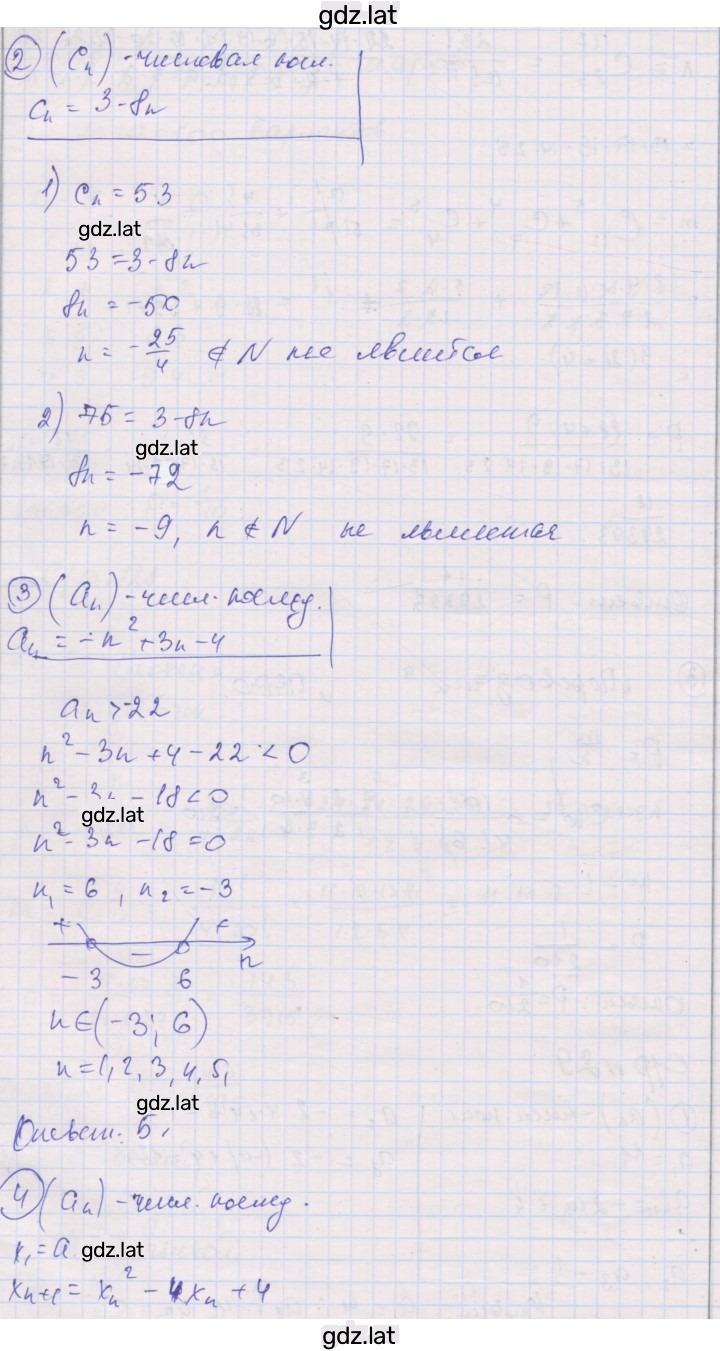 gdz.lat
② (Cₙ) - числовая посл.
Cₙ = 3 - 8n
1) Cₙ = 53
gdz.lat
53 = 3 - 8n
8n = -50
n = -25/4 ∉ N не является
2) 75 = 3 - 8n
gdz.lat
8n = -72
n = -9, n ∉ N не является
③ (aₙ) - числ. послед.
aₙ = -n² + 3n - 4
aₙ > -22
n² - 3n + 4 - 22 < 0
n² - 3n - 18 < 0
gdz.lat
n² - 3n - 18 = 0
n₁ = 6, n₂ = -3
+ - +
n
-3 6
n ∈ (-3; 6)
n = 1, 2, 3, 4, 5,
gdz.lat
Ответ: 5.
④ (aₙ) - числ. послед.
x₁ = a
gdz.lat
xₙ₊₁ = xₙ² - 4xₙ + 4
gdz.lat